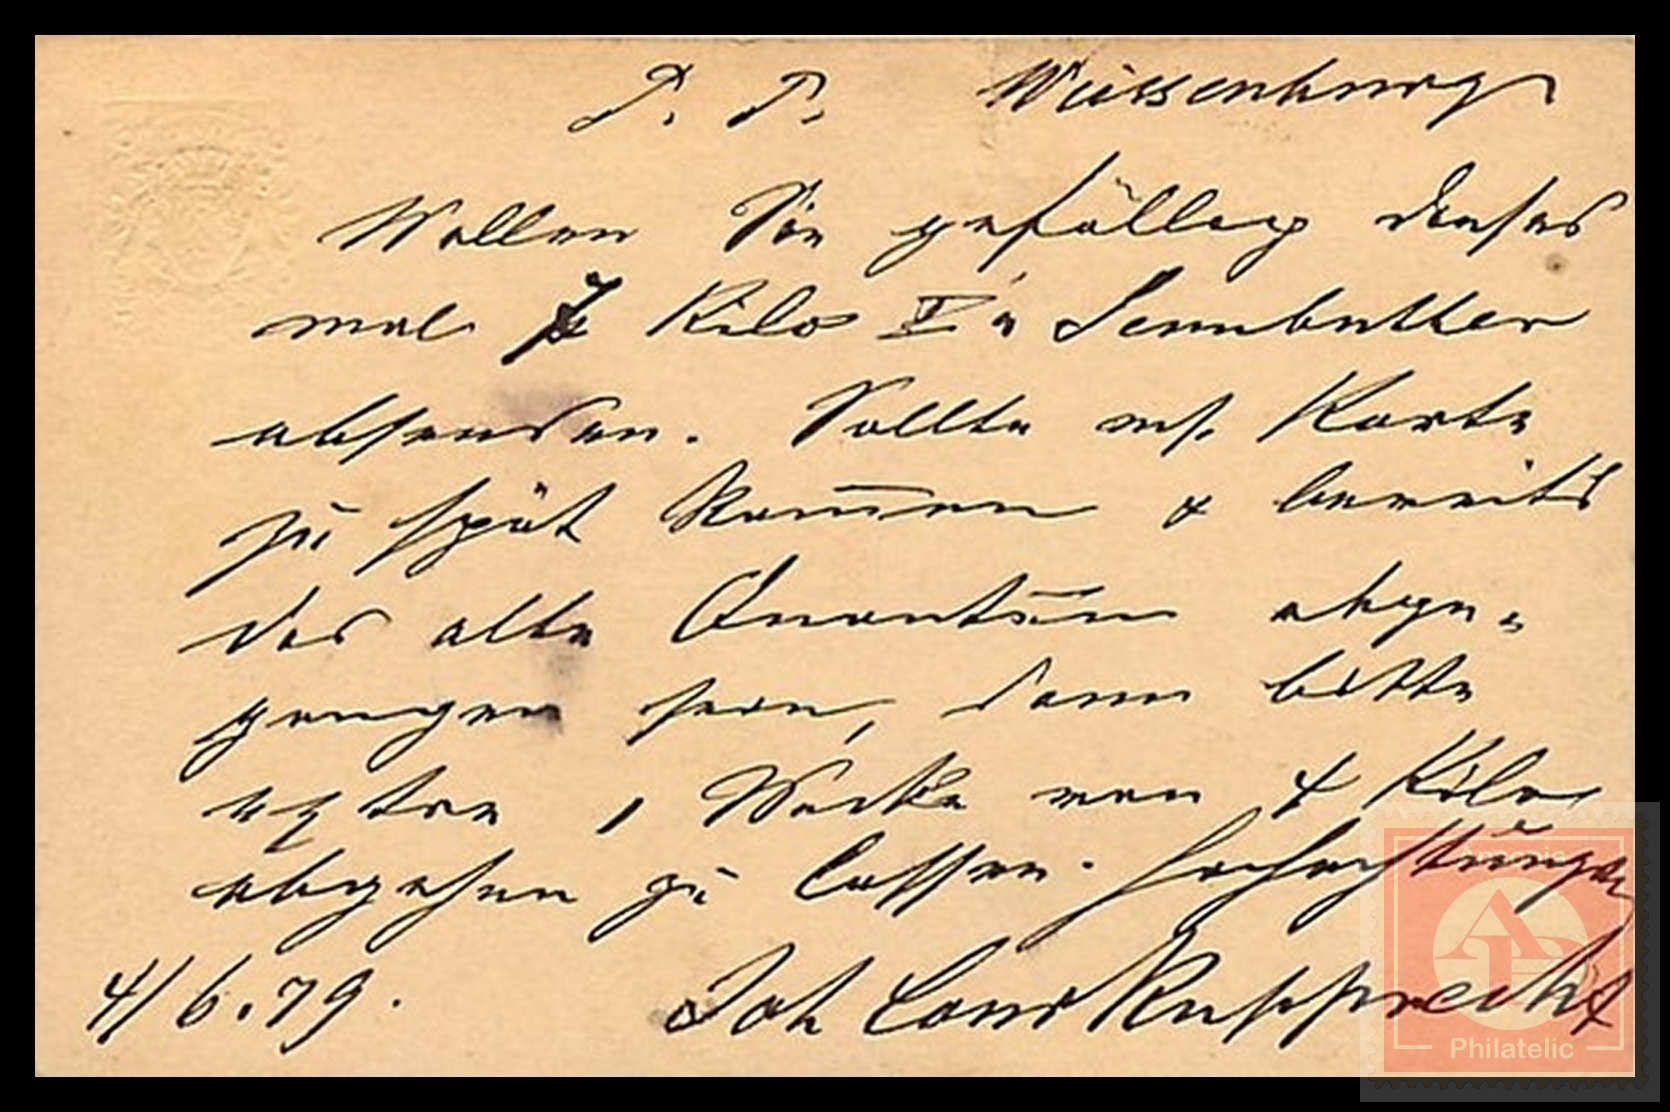 P. P. Weissenburg
Wollen Sie gefällig dieses
mal 7 Kilo Ia Sennbutter
absenden. Sollte m/. Karte
zu spät kom̅en & bereits
das alte Quantum abge-
gangen sein, dann bitte
1 Woche nur 4 Kilo
abgehen zu lassen. Hochachtungs
4/6.79. Joh Conr Rupprecht
Philatelic